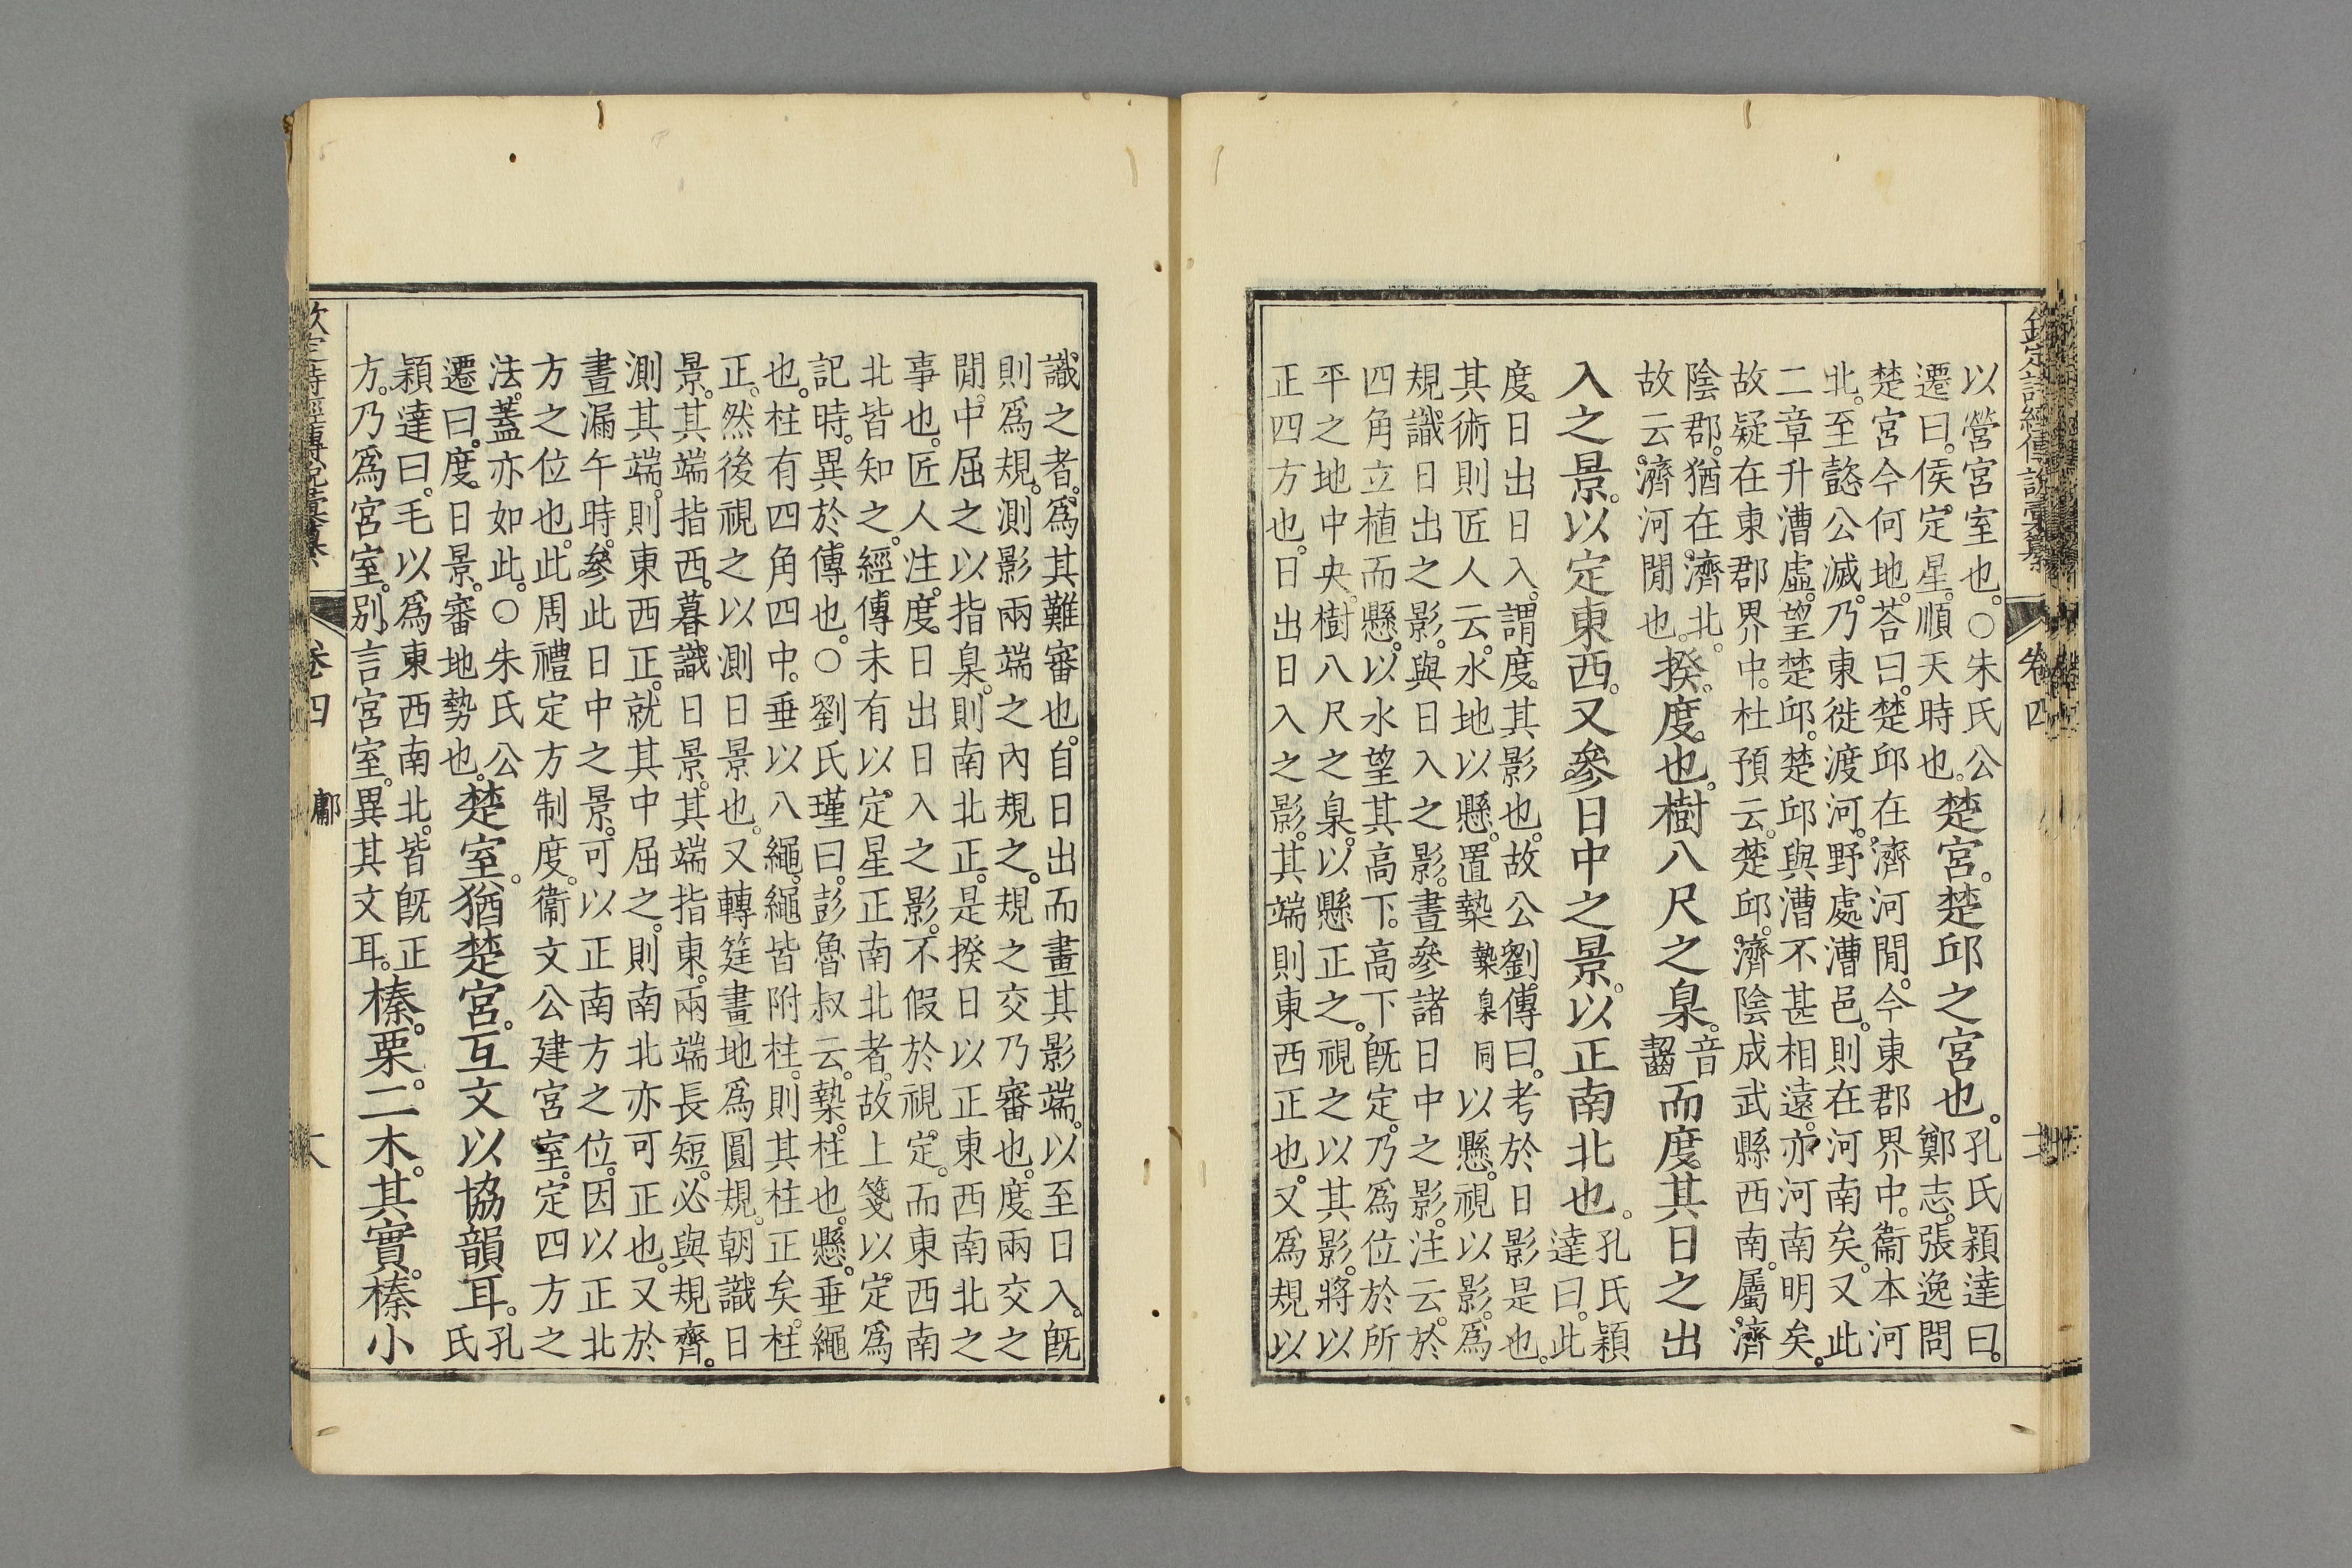 欽定詩經傳說彙纂 卷四
以營宮室也。○朱氏公
遷曰。侯。定星。順天時也。楚宮。楚邱之宮也。孔氏穎達曰。
鄭志。張逸問
楚宮今何地。荅曰。楚邱在濟河閒。今東郡界中。衞本河
北。至懿公滅。乃東徙渡河。野處漕邑。則在河南矣。又此
二章升漕虛。望楚邱。楚邱與漕不甚相遠。亦河南明矣。
故疑在東郡界中。杜預云。楚邱。濟陰成武縣西南。屬濟
陰郡。猶在濟北。
故云。濟河閒也。揆。度也。樹八尺之臬。音
齧而度其日之出
入之景。以定東西。又參日中之景。以正南北也。孔氏穎
達曰。此
度。日出日入。謂度其影也。故公劉傳曰。考於日影是也。
其術則匠人云。水地以懸。置槷槷臬同以懸。視以影。為
規識日出之影。與日入之影。晝參諸日中之影。注云。於
四角立植而懸。以水望其高下。高下旣定。乃為位於所
平之地中央。樹八尺之臬。以懸正之。視之以其影。將以
正四方也。日出日入之影。其端則東西正也。又為規以
識之者。為其難審也。自日出而畫其影端。以至日入。旣
則為規。測影兩端之內規之。規之交乃審也。度兩交之
閒。中屈之以指臬。則南北正。是揆日以正東西南北之
事也。匠人注。度日出日入之影。不假於視定。而東西南
北皆知之。經傳未有以定星正南北者。故上箋以定為
記時。異於傳也。○劉氏瑾曰。彭魯叔云。槷。柱也。懸。垂繩
也。柱有四角四中。垂以八繩。繩皆附柱。則其柱正矣。柱
正。然後視之以測日景也。又轉筳畫地為圓規。朝識日
景。其端指西。暮識日景。其端指東。兩端長短。必與規齊。
測其端。則東西正。就其中屈之。則南北亦可正也。又於
晝漏午時。參此日中之景。可以正南方之位。因以正北
方之位也。此周禮定方制度。衞文公建宮室。定四方之
法。蓋亦如此。○朱氏公
遷曰。度日景。審地勢也。楚室。猶楚宮。互文以協韻耳。孔
氏
穎達曰。毛以為東西南北。皆旣正
方。乃為宮室。別言宮室。異其文耳。榛。栗。二木。其實。榛小
卷四 鄘